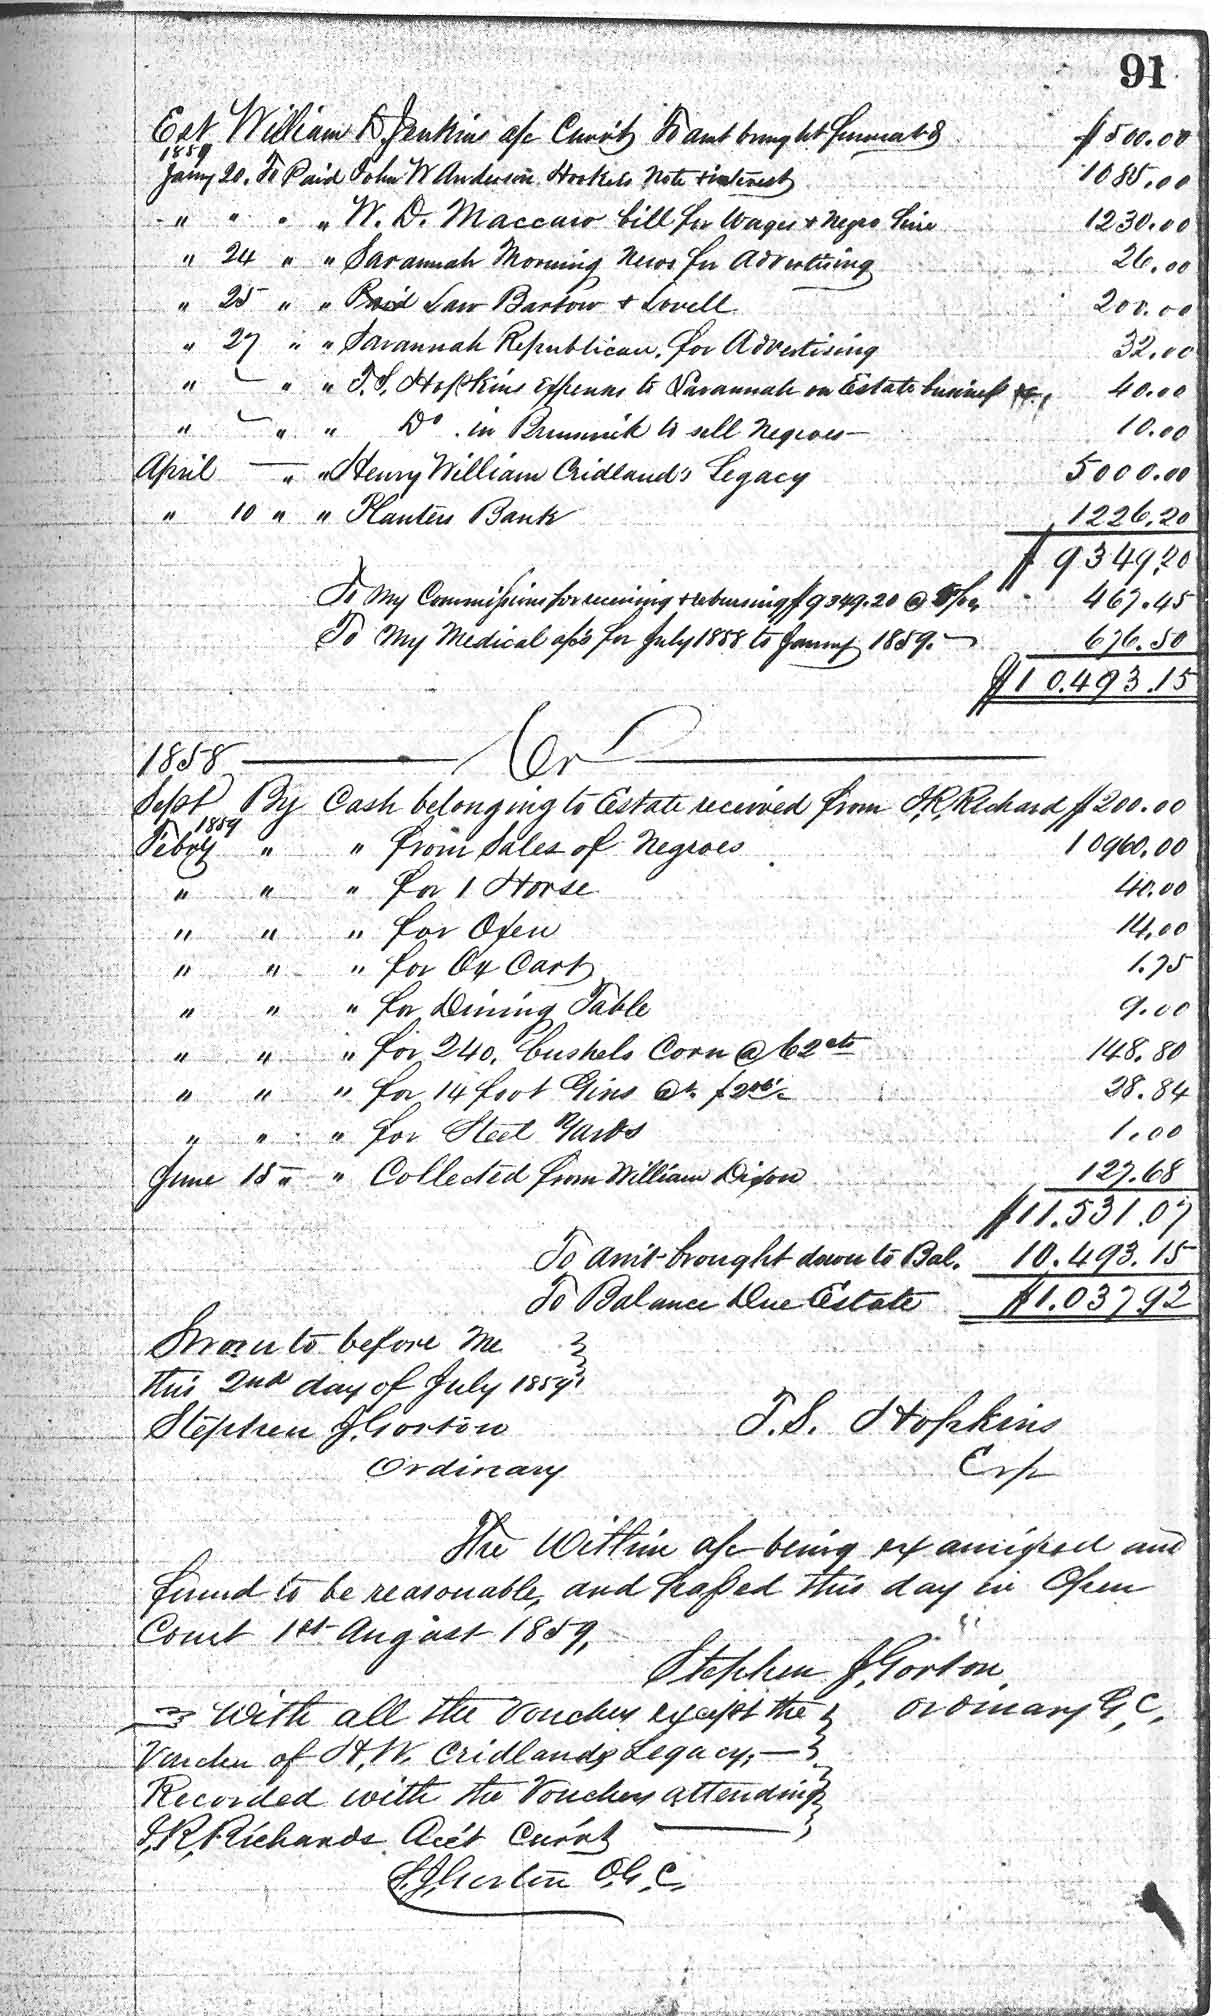 91
Est William D Jenkins a/c Curr't To amt brought forward $ $500.00
1859
Jany 20. To Paid John W Anderson Note & interest 1085.00
" " " " W. D. Maccaw bill for Wages & Negro hire 1230.00
" 24 " " Savannah Morning News for Advertising 26.00
" 25 " " Paid Law Bartow & Lovell 200.00
" 27 " " Savannah Republican, for Advertising 32.00
" " " T.S. Hopkins expenses to Savannah on Estate business 40.00
" " " Do in Brunswick to sell Negroes — 10.00
April — " " Henry William Cridland's Legacy 5000.00
" 10 " " Planters Bank 1226.20
$9349.20
To My Commissions for receiving & disbursing $9349.20 @ 5 pr ct 467.45
To My Medical a/c's for July 1858 to Janry 1859. 676.50
$10.493.15
1858 Cr
Sept By Cash belonging to Estate received from J.R. Richard $200.00
1859
Feb'y " " from Sales of Negroes 10960.00
" " " for 1 Horse 40.00
" " " for Oxen 14.00
" " " for Ox Cart 1.75
" " " for Dining Table 9.00
" " " for 240. bushels Corn @ 62 cts 148.80
" " " for 14 foot Gins @ 28.84
" " " for Steel Yards 1.00
June 15 " " Collected from William Dixon 127.68
$11.531.07
To am't brought down to Bal. 10.493.15
To Balance Due Estate $1.037.92
Sworn to before Me
this 2nd day of July 1859
Stephen J. Gorton T.S. Hopkins
Ordinary Exr
The Within a/c being examined and
found to be reasonable, and passed this day in Open
Court 1st August 1859,
Stephen J. Gorton,
With all the Vouchers except the Ordinary G.C.
Voucher of H.W. Cridlands Legacy, —
Recorded with the Vouchers attending
J.R. Richards Acc't Curr't
S.J. Gorton O.G.C.